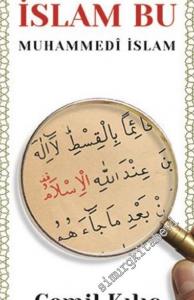 İSLAM BU
MUHAMMEDÎ İSLAM
قَائِمًا بِالْقِسْطِ لَآ اِلٰهَ
نَ عِنْدَ اللّٰهِ الْاِسْلَامُ
نْ بَعْدِ مَا جَٓاءَهُمُ
Cemil Kılıç